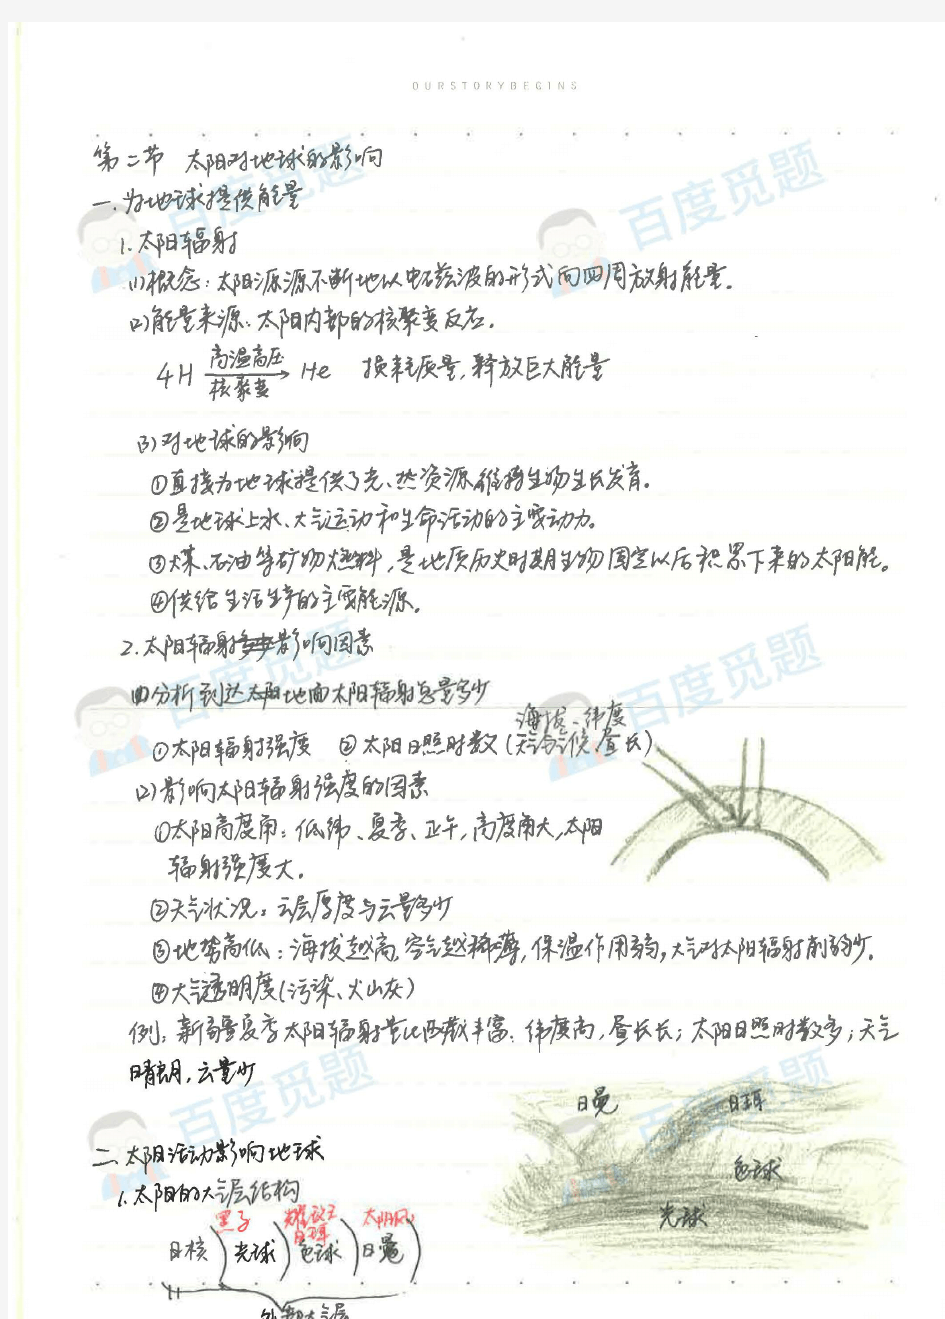 OURSTORYBEGINS
第二节 太阳对地球的影响
一.为地球提供能量
1.太阳辐射
(1)概念:太阳源源不断地以电磁波的形式向四周放射能量。
(2)能量来源:太阳内部的核聚变反应。
4H 高温高压 核聚变 → He 损耗质量,释放巨大能量
(3)对地球的影响
①直接为地球提供了光、热资源,维持生物生长发育。
②是地球上水、大气运动和生命活动的主要动力。
③煤、石油等矿物燃料,是地质历史时期生物固定以后积累下来的太阳能。
④供给生活生产的主要能源。
2.太阳辐射影响因素
(1)分析到达地面太阳辐射总量多少
海拔、纬度
①太阳辐射强度 ②太阳日照时数(天气气候、昼长)
(2)影响太阳辐射强度的因素
①太阳高度角:低纬、夏季、正午,高度角大,太阳
辐射强度大。
②天气状况:云层厚度与云量多少
③地势高低:海拔越高,空气越稀薄,保温作用弱,大气对太阳辐射削弱少。
④大气透明度(污染、火山灰)
例:新疆夏季太阳辐射量比西藏丰富:纬度高,昼长长;太阳日照时数多;天气
晴朗,云量少
日冕 日珥
色球
光球
二.太阳活动影响地球
1.太阳的大气层结构
黑子 耀斑 日珥 太阳风
日核 光球 色球 日冕
外部大气层
百度觅题
百度觅题
百度觅题
百度觅题
百度觅题
百度觅题